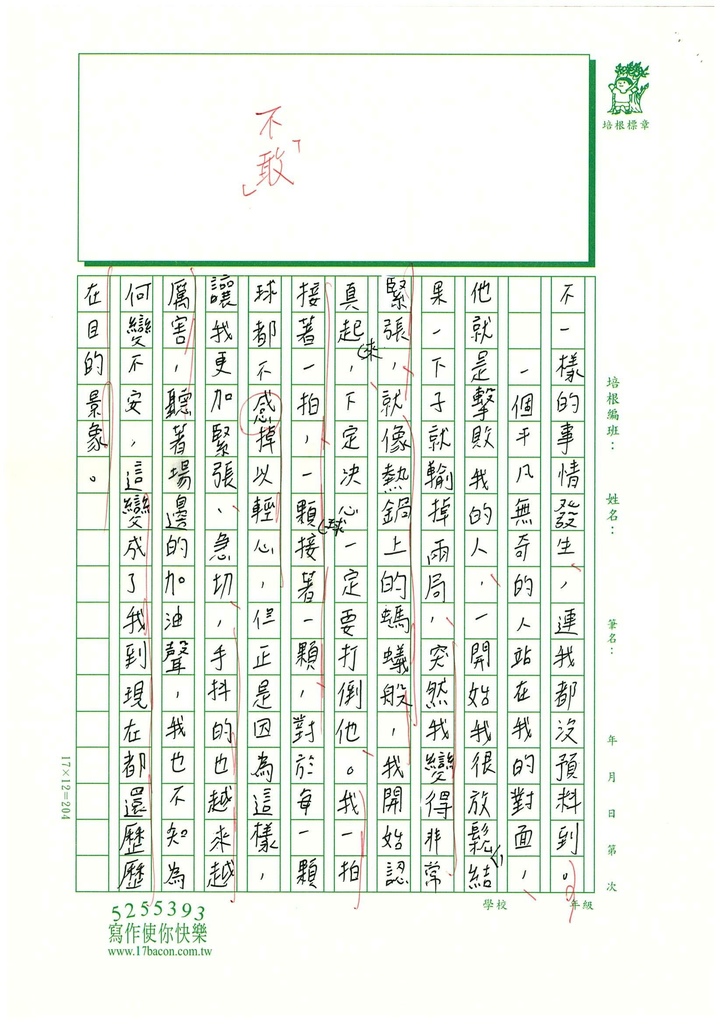 不
敢
培根標章
培根編班：　姓名：　筆名：　年　月　日　第　次
不一樣的事情發生，連我都沒預料到。
一個平凡無奇的人站在我的對面，
他就是擊敗我的人，一開始我很放鬆結
果一下子就輸掉兩局，突然我變得非常
緊張，就像熱鍋上的螞蟻般，我開始認
真起，下定決心一定要打倒他。我一拍
來
接著一拍，一顆接著一顆，對於每一顆
球
球都不感掉以輕心，但正是因為這樣，
讓我更加緊張、急切，手抖的也越來越
厲害，聽著場邊的加油聲，我也不知為
何變不安，這變成了我到現在都還歷歷
在目的景象。
17×12=204
學校　年級
5255393
寫作使你快樂
www.17bacon.com.tw